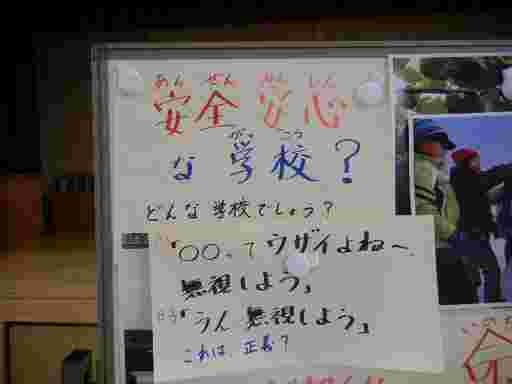 あん ぜん あん しん
安全安心
がっ こう
な学校？
どんな学校でしょう？
「○○って ウザイよね〜、
無視しよう」
「うん 無視しよう」
これは、正義？
いのち
命